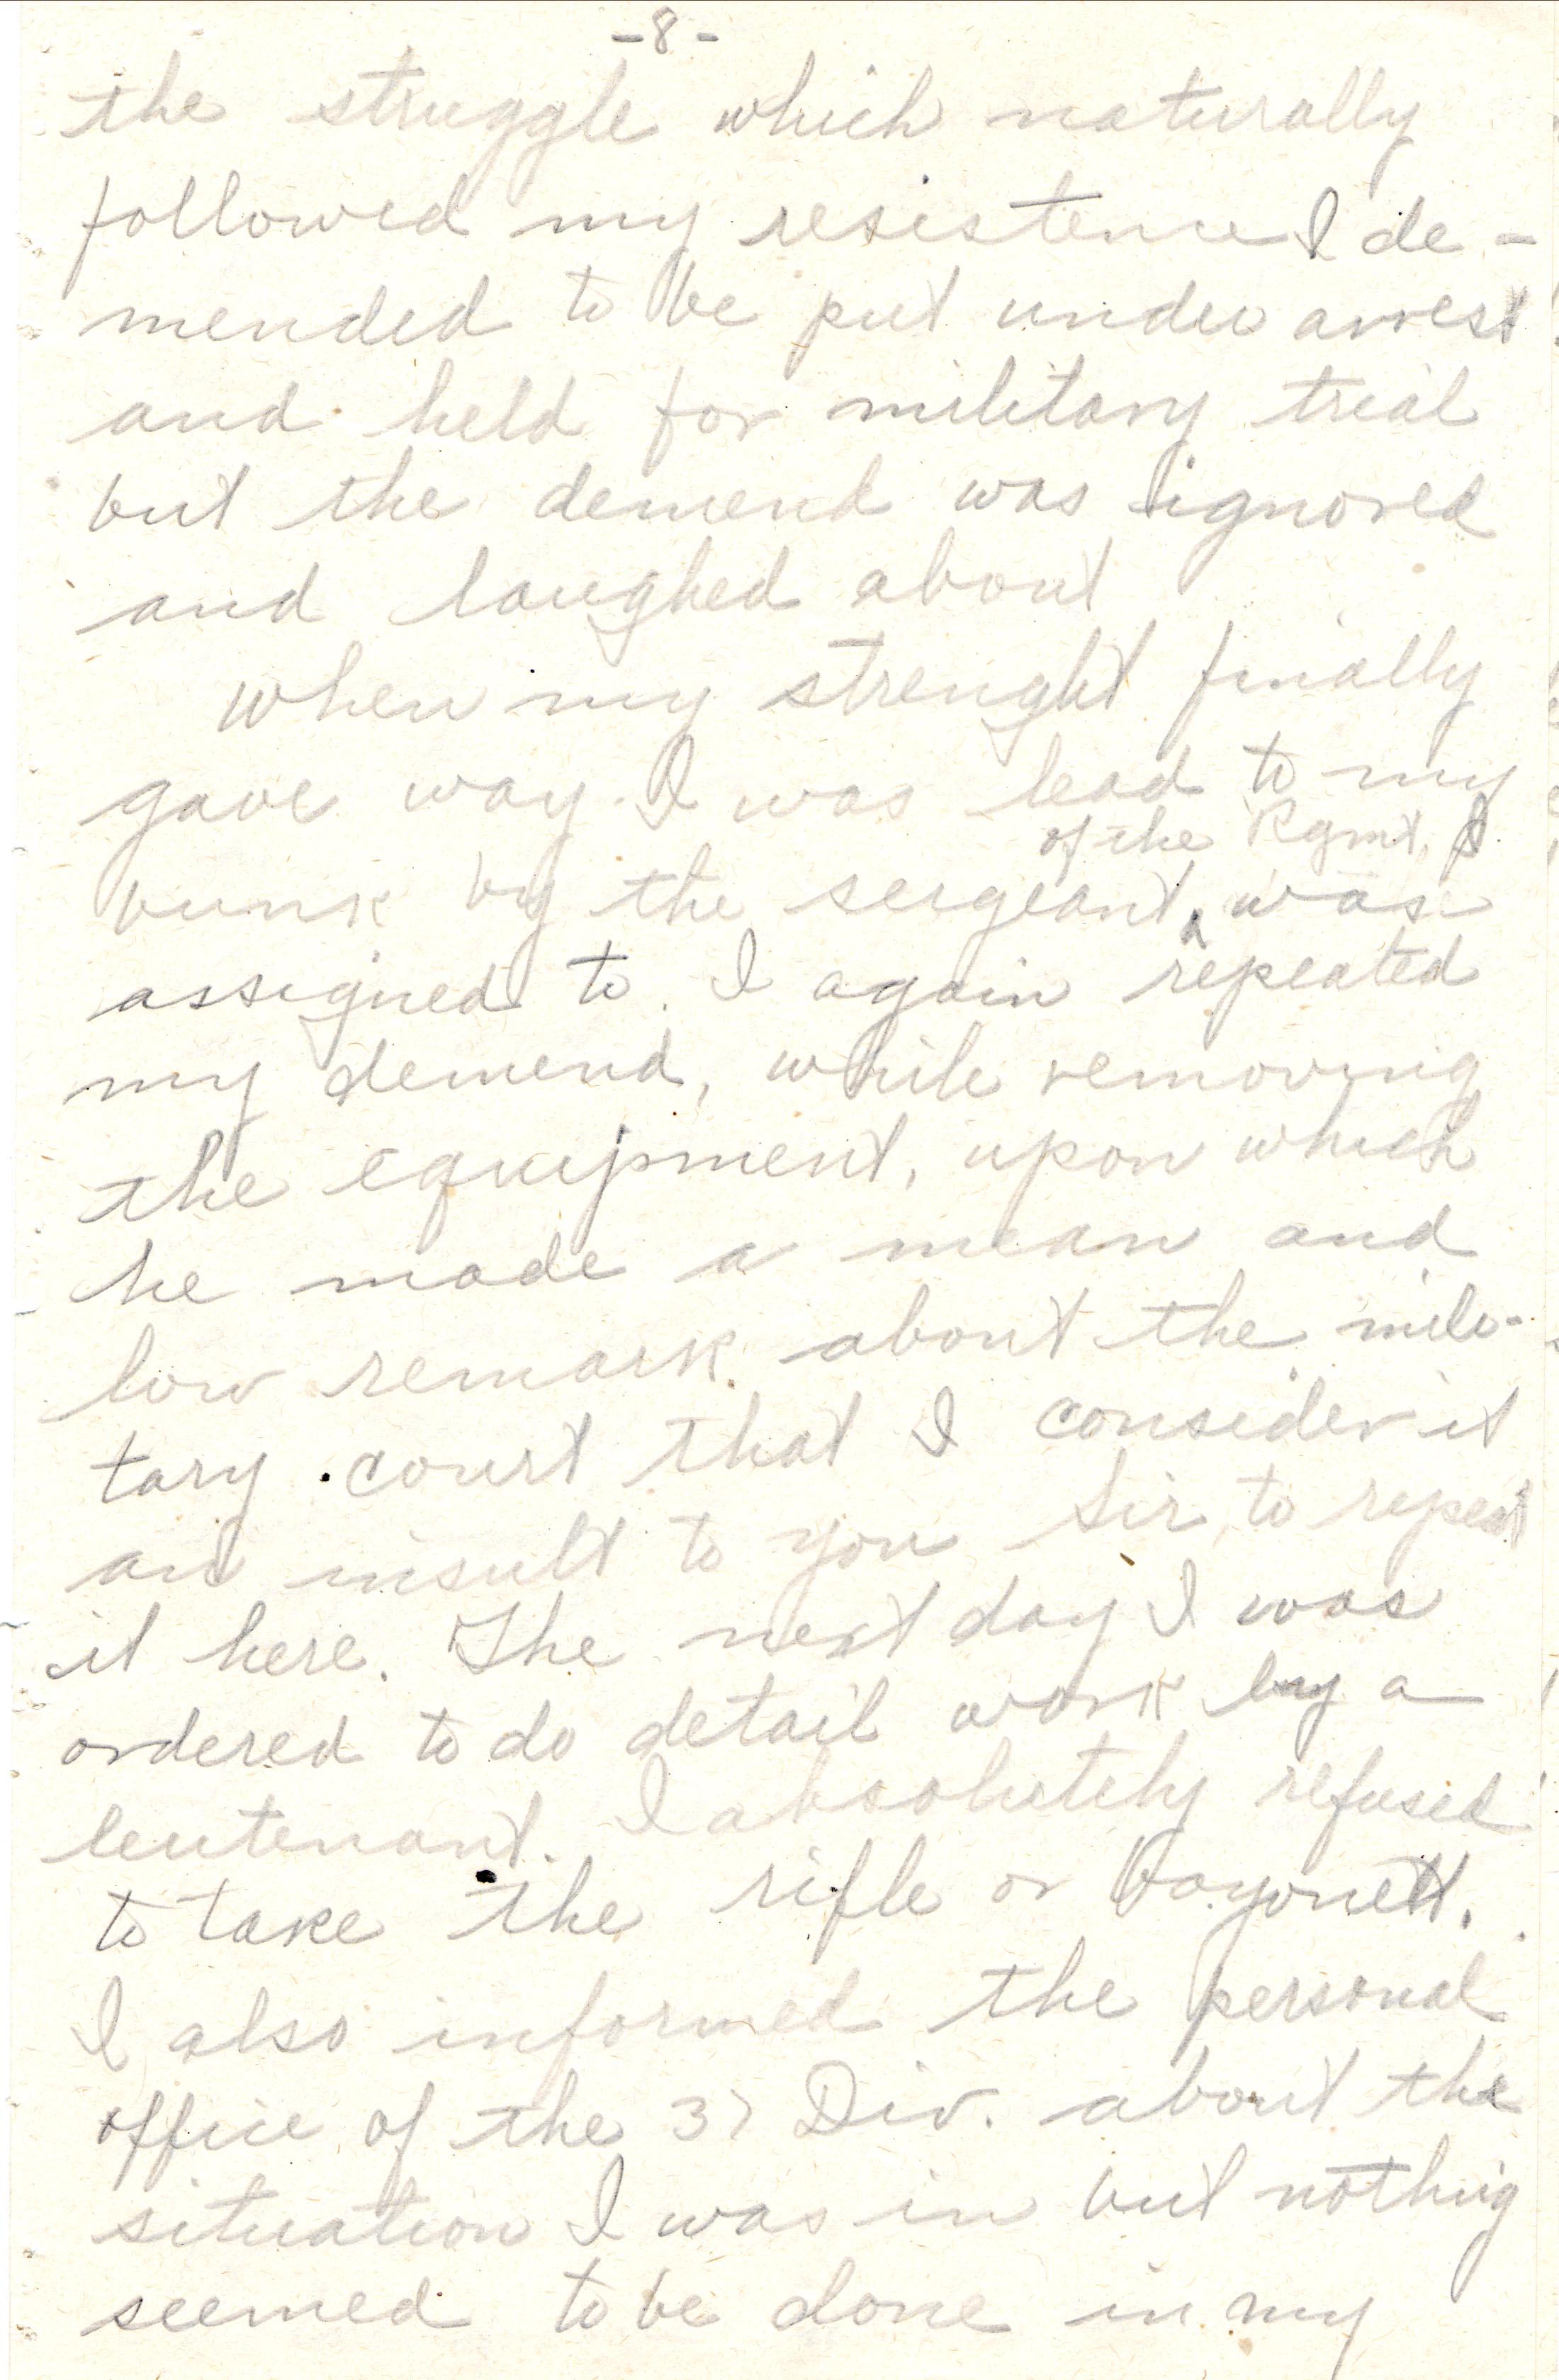 -8-
the struggle which naturally
followed my resistence I de-
mended to be put under arrest
and held for military trial
but the demend was ignored
and laughed about
when my strenght finally
gave way I was lead to my
of the Rgmt. I
bunk by the sergeant, was
assigned to. I again repeated
my demend, while removing
the equipment, upon which
he made a mean and
low remark about the mili-
tary court that I consider it
an insult to you Sir, to repeat
it here. The next day I was
ordered to do detail work by a
leutenant. I absolutely refused
to take the rifle or bayonett.
I also informed the personal
office of the 37 Div. about the
situation I was in but nothing
seemed to be done in my